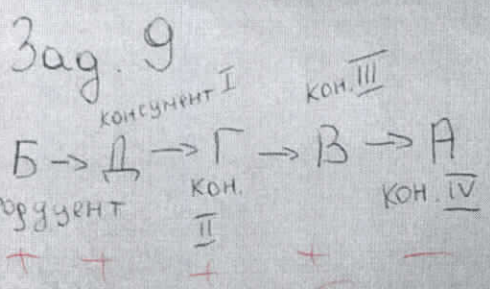 Зад. 9
консумент I
кон. III
Б → Д → Г → В → А
кон. II
кон. IV
+ + + + −